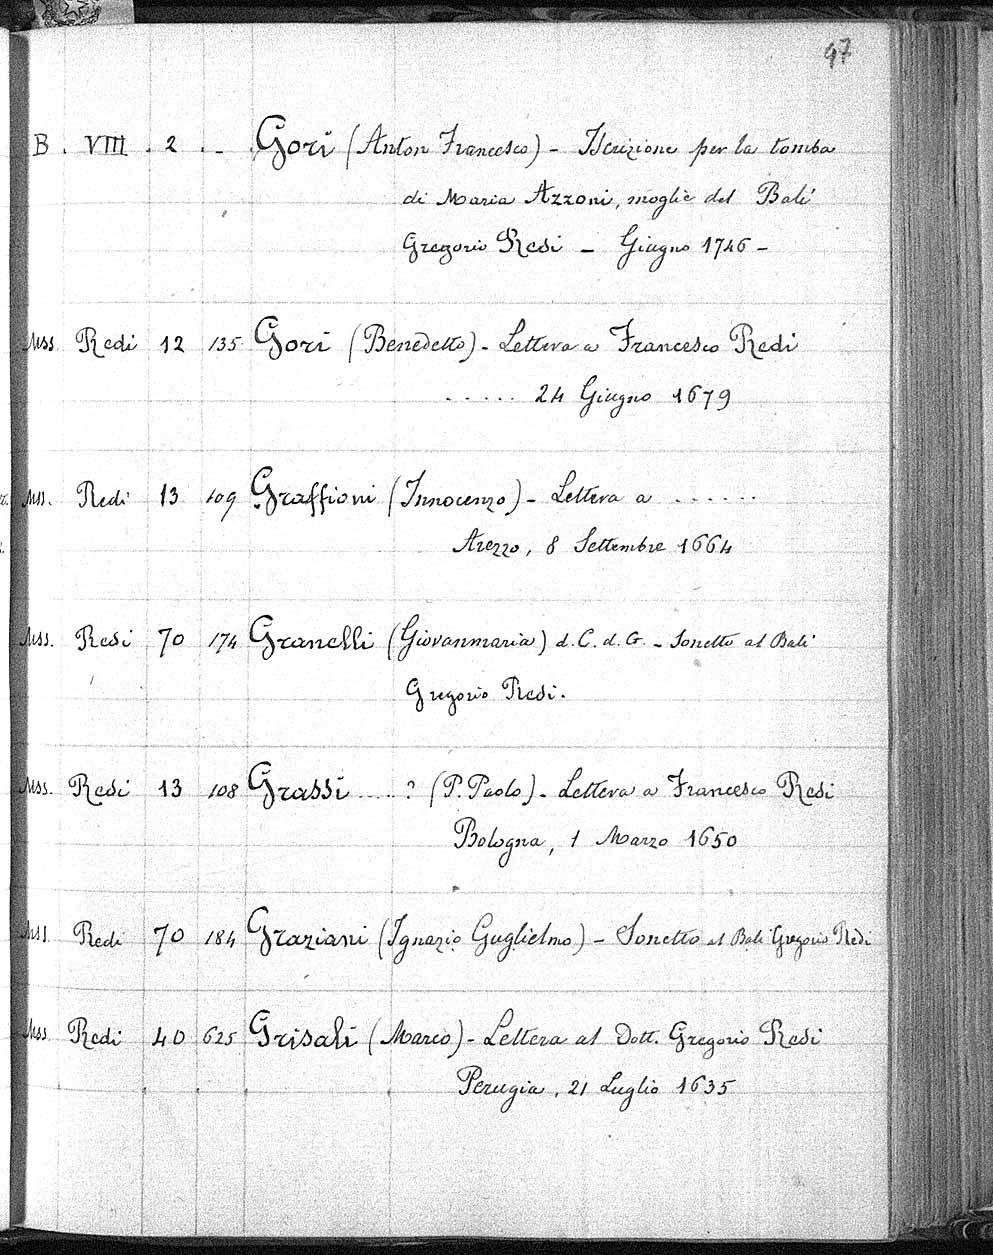 97
B. VIII. 2. - Gori (Anton Francesco) - Iscrizione per la tomba
di Maria Azzoni, moglie del Balì
Gregorio Redi - Giugno 1746 -
Mss. Redi 12 135 Gori (Benedetto) - Lettera a Francesco Redi
. . . . . 24 Giugno 1679
Mss. Redi 13 109 Graffioni (Innocenzo) - Lettera a . . . . . .
Arezzo, 8 Settembre 1664
Mss. Redi 70 174 Granelli (Giovanmaria) d. C. d. G. - Sonetto al Balì
Gregorio Redi.
Mss. Redi 13 108 Grassi .....? (P. Paolo) - Lettera a Francesco Redi
Bologna, 1 Marzo 1650
Mss. Redi 70 184 Graziani (Ignazio Guglielmo) - Sonetto al Balì Gregorio Redi
Mss. Redi 40 625 Grisali (Marco) - Lettera al Dott. Gregorio Redi
Perugia, 21 Luglio 1635